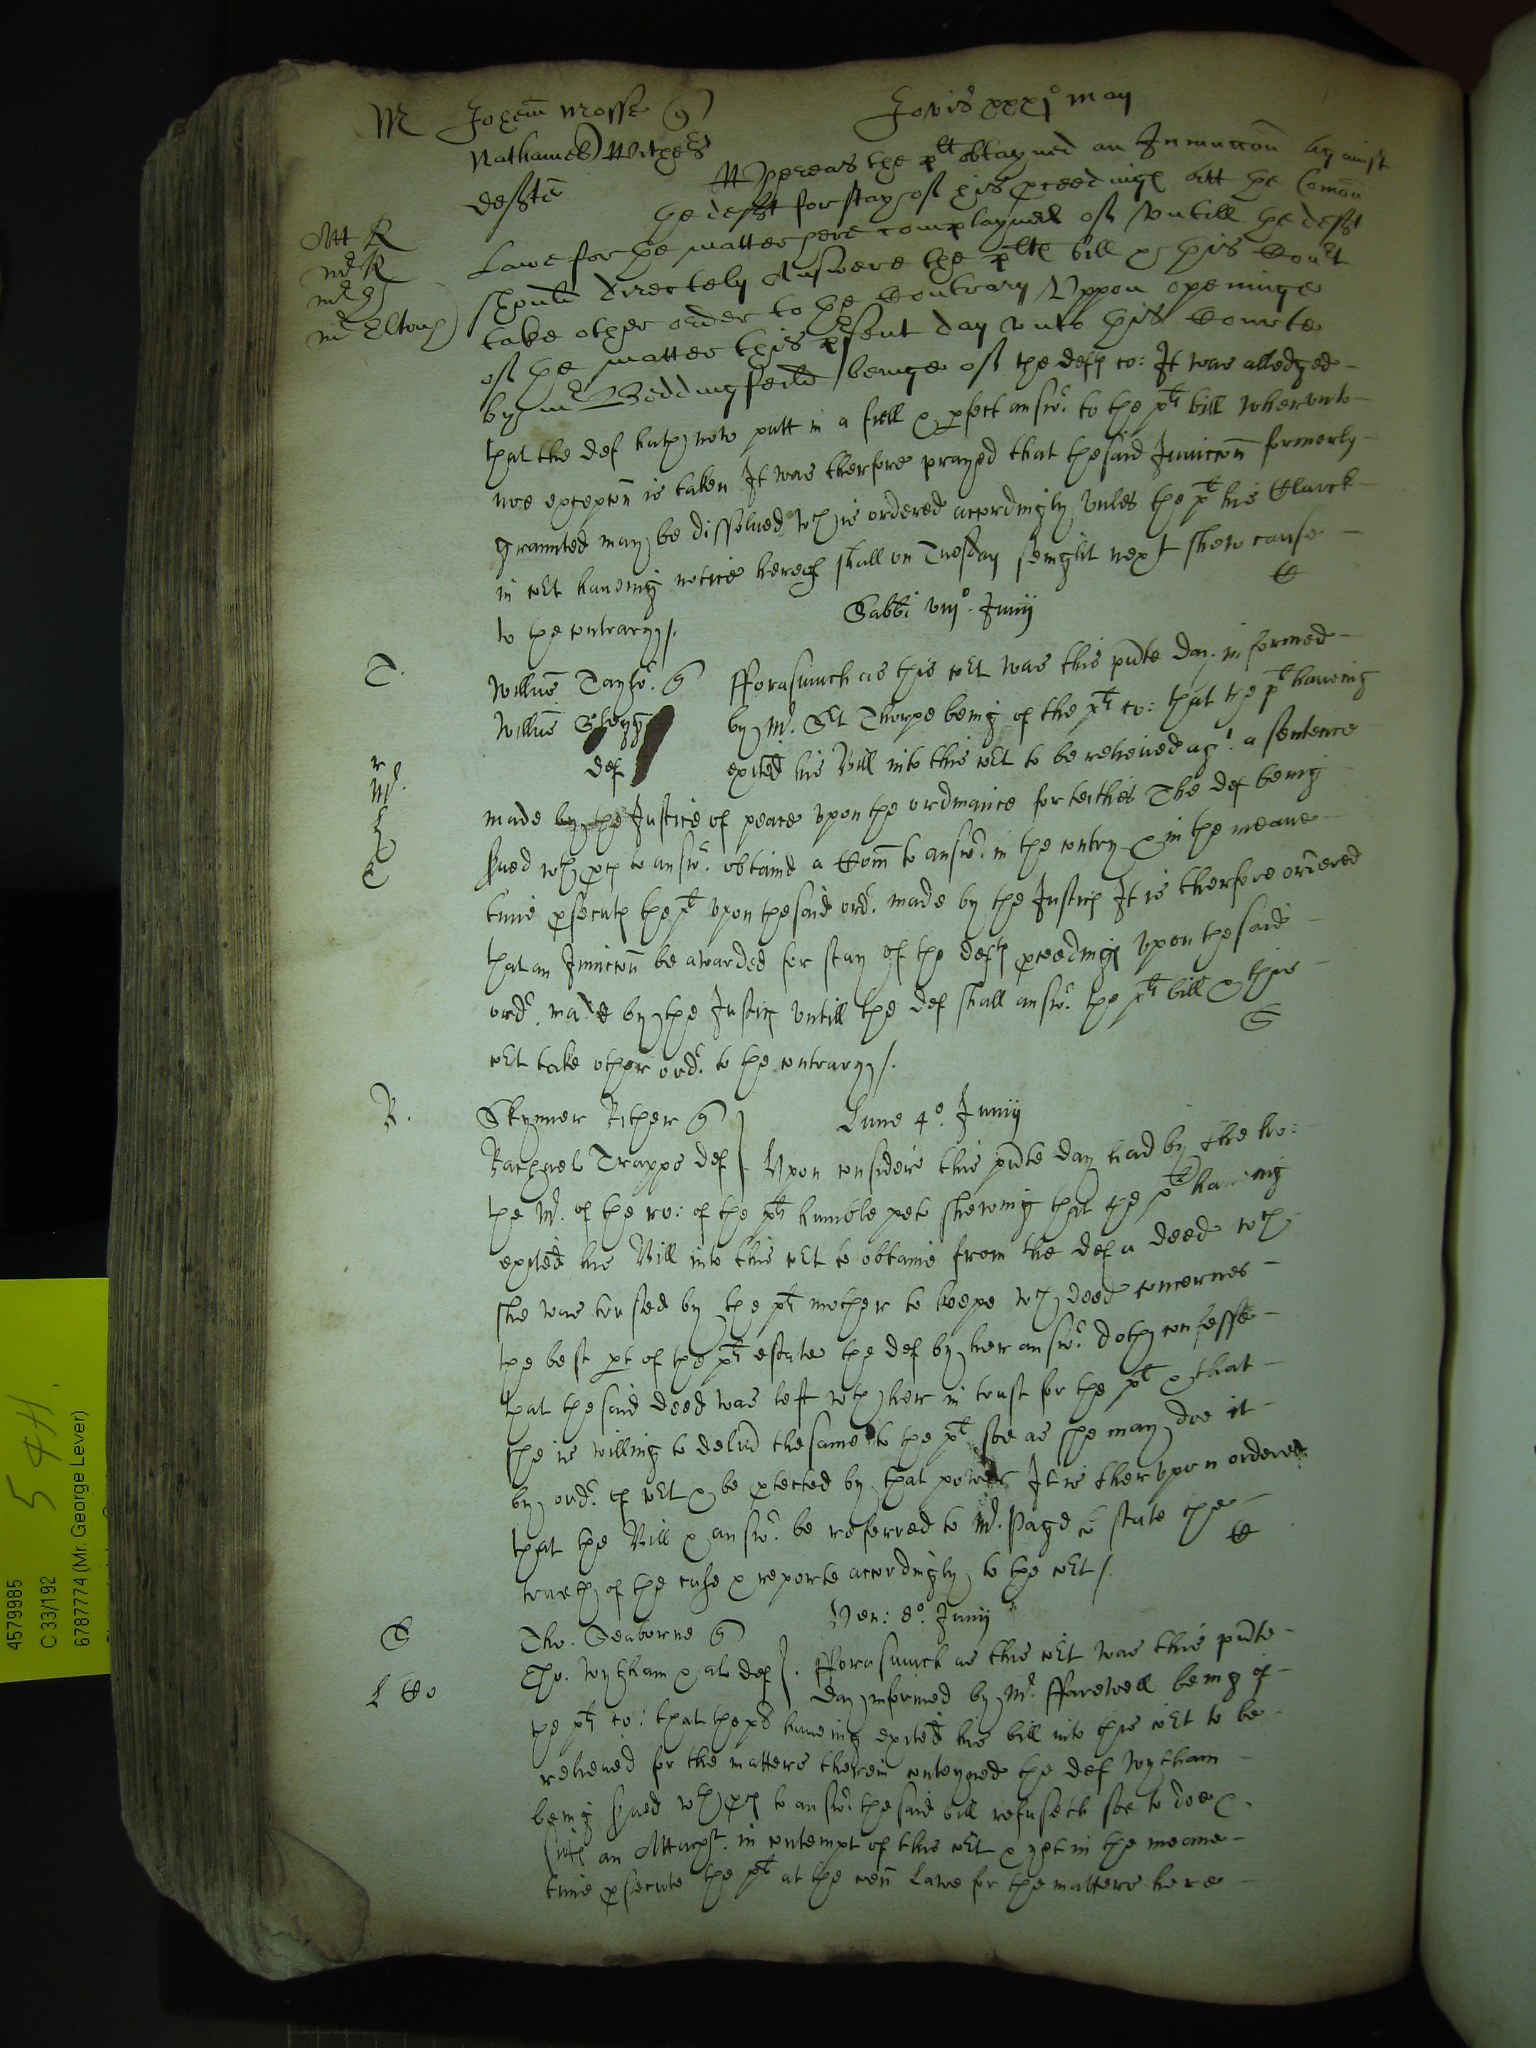 M Johem Mosse q Jovis xxxj° May
Nathaniell Withers
defte Whereas the plt obtayned an Iniunccon against
the deft for stay of his pceedings att the Comon
Att R
Lawe for the matter here complayned of Untill the deft
mr R
should directely Answere the plts bill & this Court
mr
take other order to the Contrary Uppon openinge
mr Eltonh
of the matter this psent day unto this Courte
by mr Beddingfeild beinge of the defts co: It was alledged
that the def hath now putt in a full & pfect answr to the plts bill wherunto
noe excepcon is taken It was therfore prayed that the said Iniunccon formerly
graunted may be dissolued wch is ordered accordingly unles the plt his Clarck
in cort haueing notice hereof shall on Tuesday senight next shew cause
to the contrary /.
Sabbi viij°. Junij
T. Willus Taylor. q fforasmuch as this cort was this pnte day informed
Willus by Mr. Sert Thorpe being of the plts co: that the plt haueing
def exited his Bill into this cort to be releiued agt a sentence
made by the Justice of peace upon the ordinance for teithes The def being
sued wth pces to answr. obtaind a Com to answr. in the contry & in the meane
time psecuts the plt upon the said ordr. made by the Justics It is therfore ordered
that an Iniunccon be awarded for stay of the defts pceedings upon the said
ordr. made by the Justics untill the def shall answr. the plts bill & this
cort take other ordr. to the contrary /.
R. Skynner Rither q Lune 4°. Junij
Rachael Trapps def } Upon consideracon this pnte day had by the ho:
the Mr. of the ro: of the plts humble peto shewing that the plt haueing
exited his Bill into this cort to obtaine from the def a deed wch
she was trusted by the plts mother to keepe wch deed concernes
the best pt of the plts estate the def by her answr. doth confesse
that the said deed was left wth her in trust for the plt & that
she is willing to deliu the same to the plt soe as she may doe it
by ordr. of cort & be ptected by that power It is therupon ordered
that the Bill & answr. be referred to Mr. Page to state the
trueth of the case & reporte accordingly to the cort /.
Ven: 8°. Junij
S Tho. Seaborne q
Tho. Wytham & al def }. fforasmuch as this cort was this pnte
day informed by Mr. ffarewell being of
the plts co: that the plt haueing exited his bill into this cort to be
releiued for the matters therein conteyned the def Wytham
being sued wth pces to answr. the said bill refuseth soe to doe &
sitts an Attachmt. in contempt of this cort & yet in the meane
time psecute the plt at the comon Lawe for the matters here
54H.
4579985
C 33/192
6787774 (Mr. George Lever)